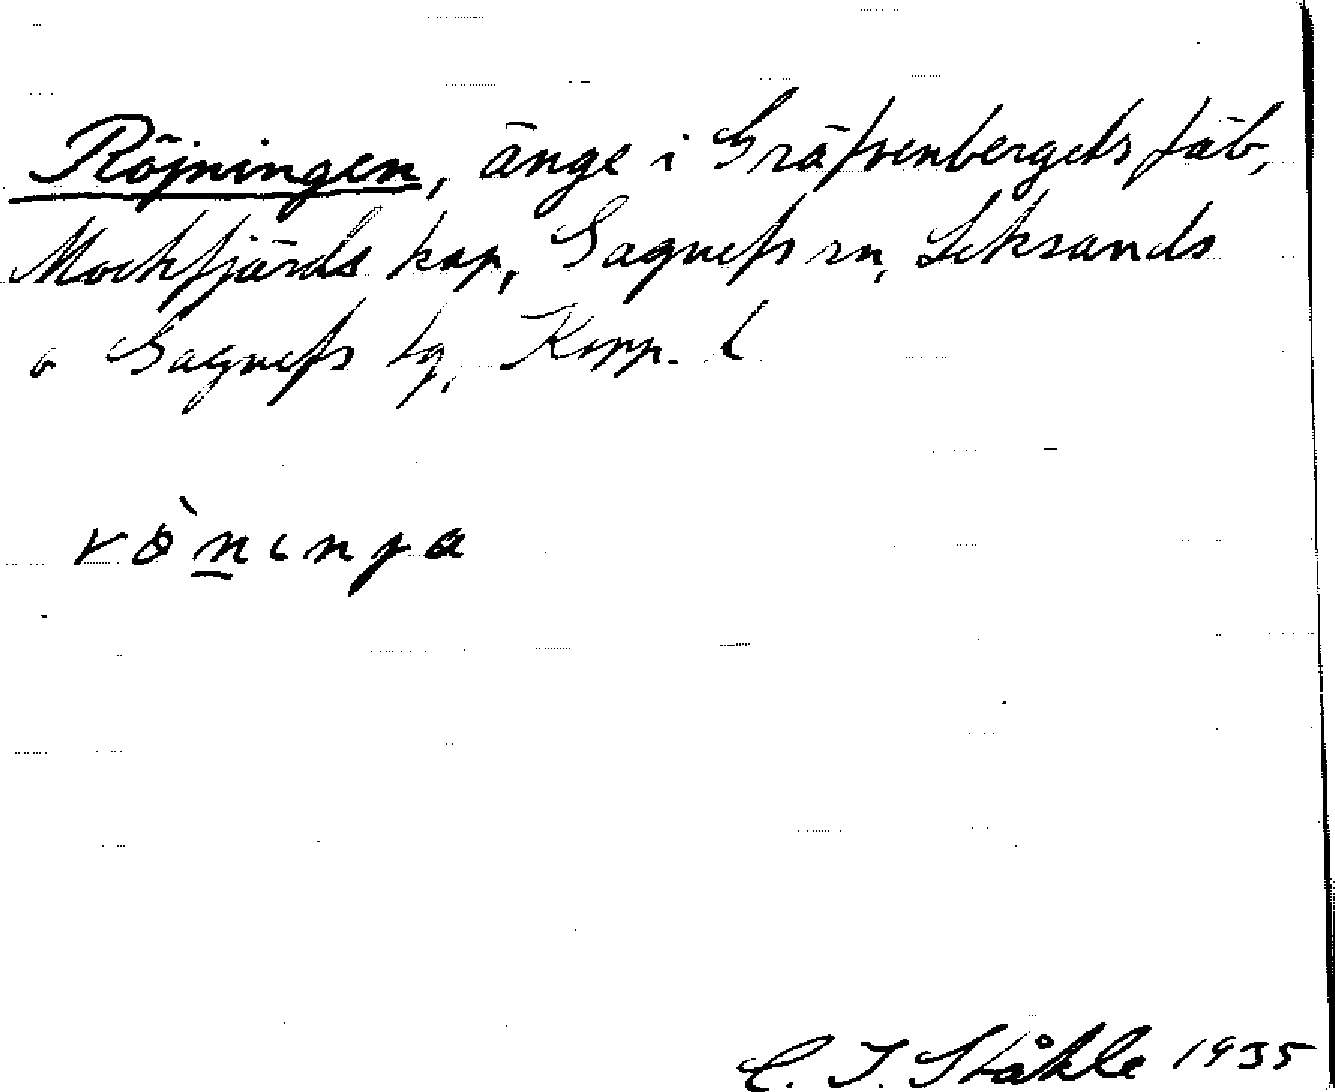 Röjningen, änge i Gräfvenbergets fäb,
Mockfjärds kap, Gagnefs sn, Leksands
o Gagnefs tg, Kopp. l
rö̀niŋa
C. I. Ståhle 1935